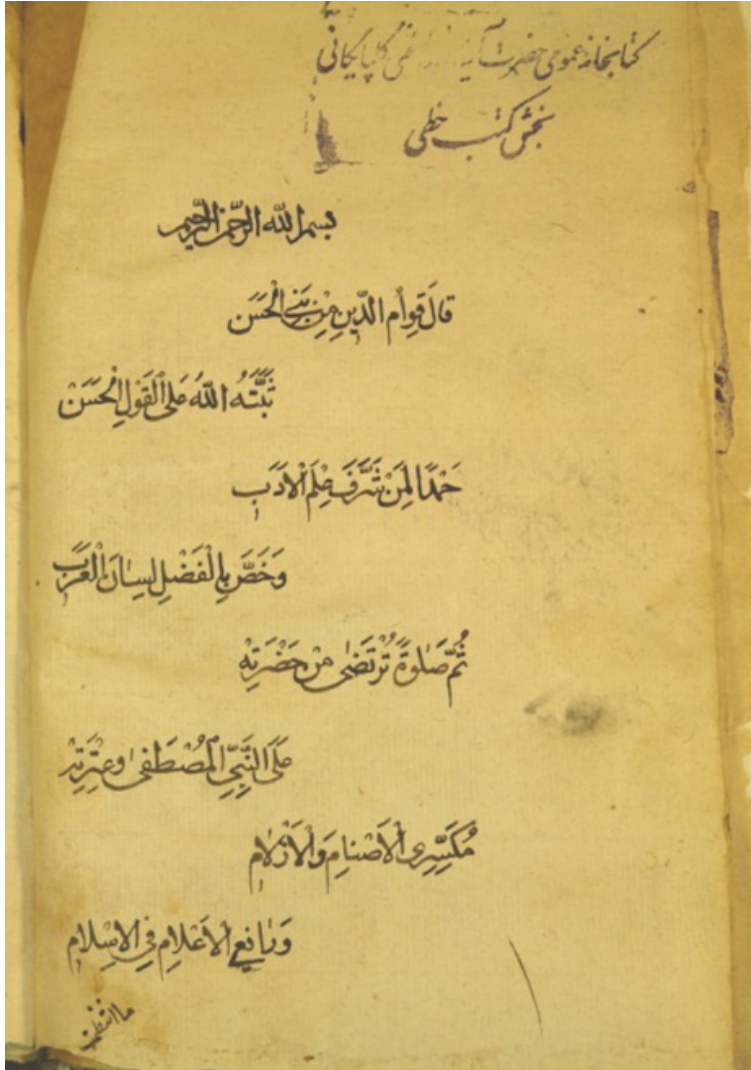 كتابخانه عمومی حضرت آية گلپایگانی
بخش کتب خطی
بسم الله الرحمن الرحيم
قالَ قِوامُ الدّينِ مِنْ بَنِي الْحَسَن
ثَبَّتَهُ اللّٰهُ عَلَى الْقَوْلِ الْحَسَنْ
حَمْدًا لِمَنْ شَرَّفَ عِلْمَ الْأَدَبِ
وَخَصَّ بِالْفَضْلِ لِسانَ الْعَرَبِ
ثُمَّ صَلٰوةً تُرْتَضٰى مِنْ حَضْرَتِهْ
عَلَى النَّبِيِّ الْمُصْطَفٰى وَعِتْرَتِهْ
مُكَسِّرِى الْأَصْنامِ وَالْأَزْلامِ
وَرافِعِي الْأَعْلامِ فِي الْإِسْلامِ
ما انتظمت